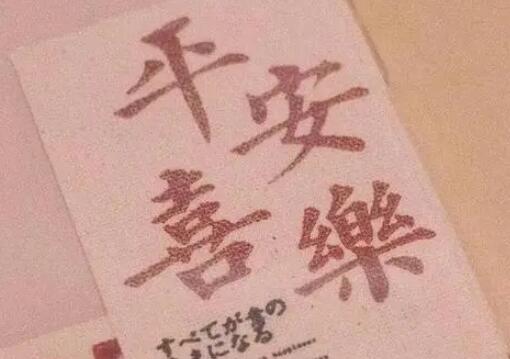 平安
喜樂
すべてが
になる